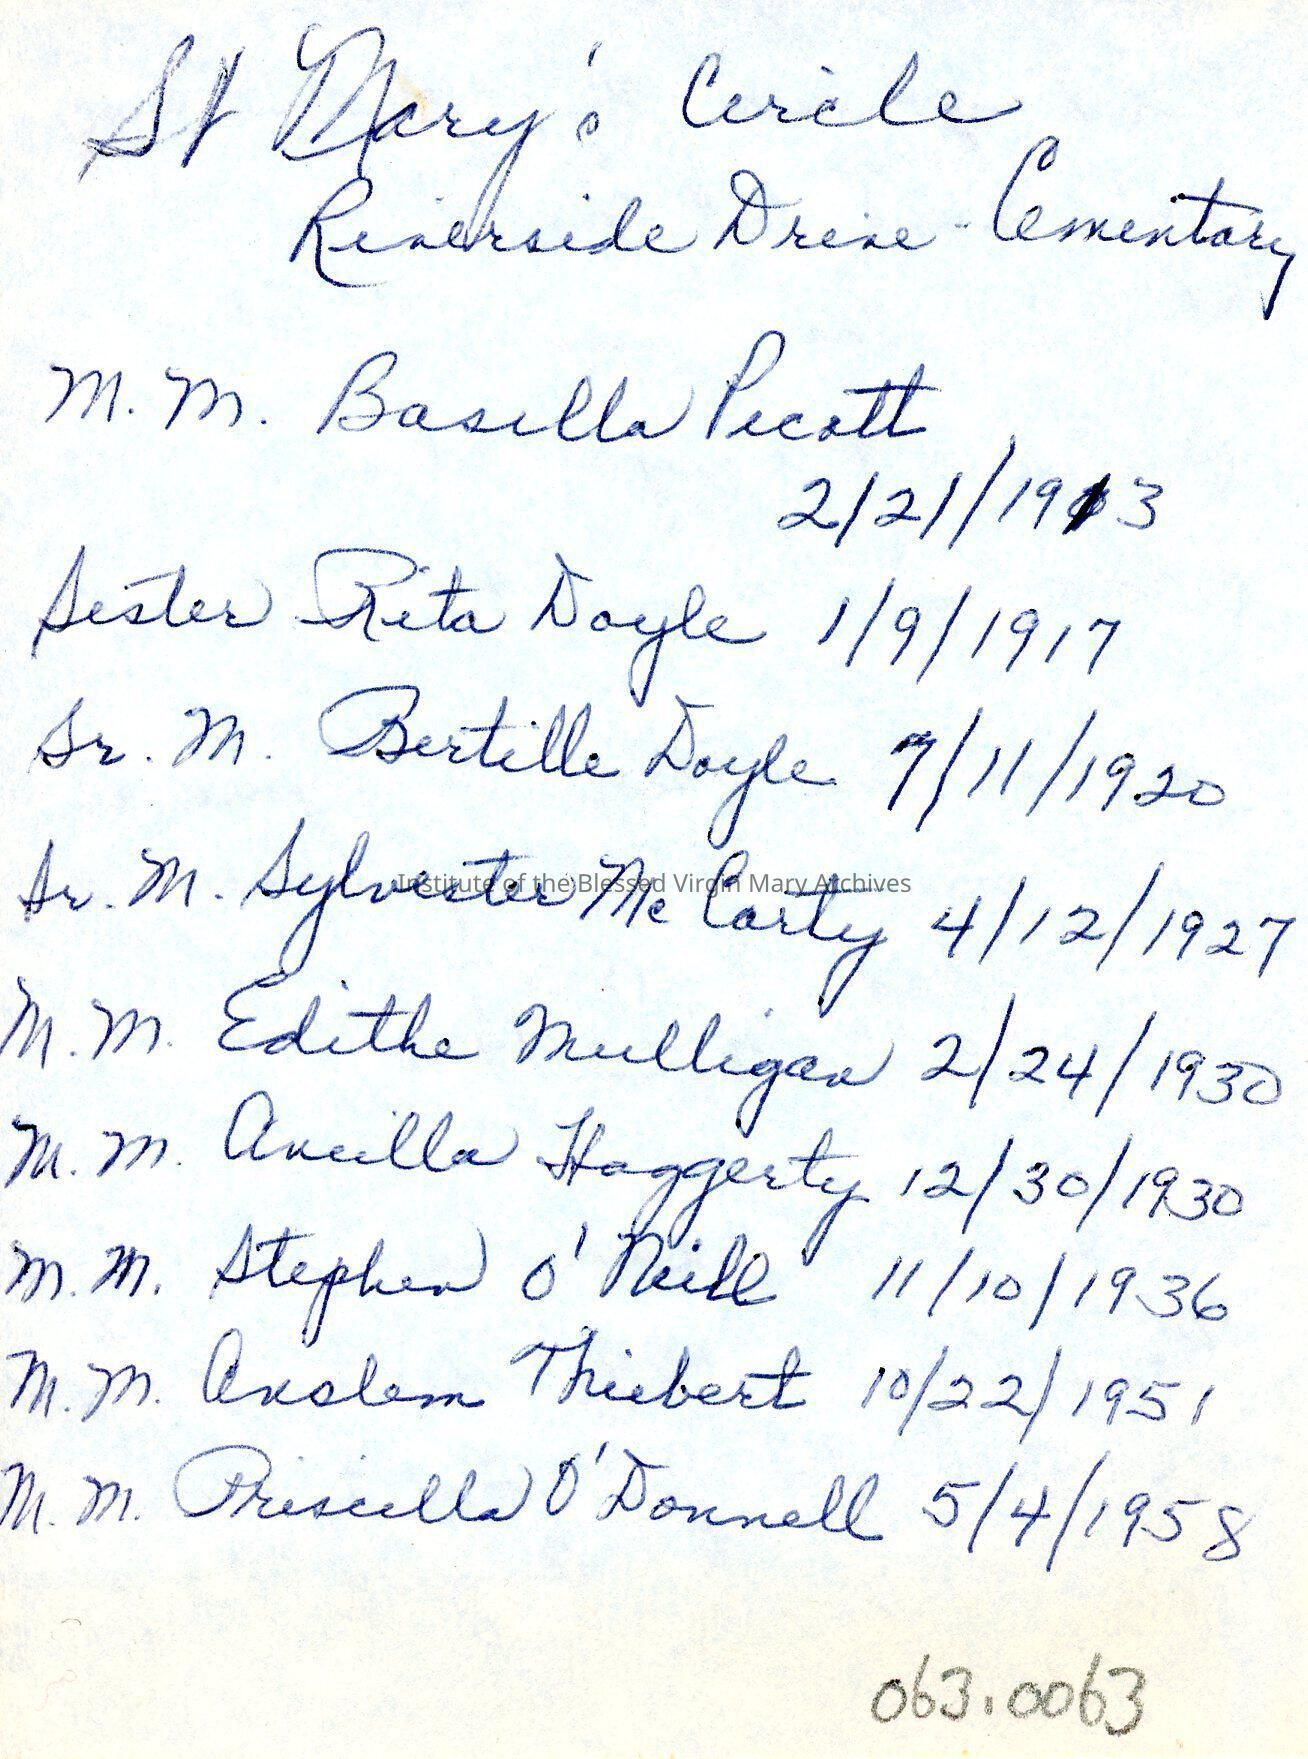 St Mary's Circle
Riverside Drive - Cementary
M. M. Basilla Picott
2/21/1913
Sister Rita Doyle 1/9/1917
Sr. M. Bertille Doyle 7/11/1920
Sr. M. Sylvester McCarty 4/12/1927
Institute of the Blessed Virgin Mary Archives
M. M. Edithe Mulligan 2/24/1930
M. M. Ancilla Haggerty 12/30/1930
M. M. Stephen O'Neill 11/10/1936
M. M. Anslem Thiebert 10/22/1951
M. M. Priscilla O'Donnell 5/4/1958
063.0063